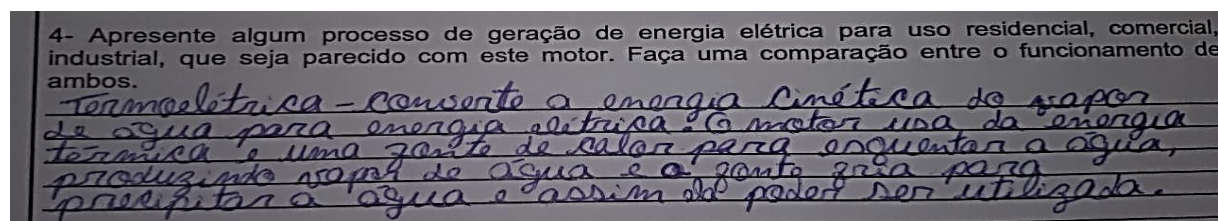 4- Apresente algum processo de geração de energia elétrica para uso residencial, comercial,
industrial, que seja parecido com este motor. Faça uma comparação entre o funcionamento de
ambos.
Termoelétrica - converte a energia cinética do vapor
de água para energia elétrica. O motor usa da energia
térmica e uma fonte de calor para esquentar a água,
produzindo vapor de água e a fonte fria para
precipitar a água e assim poder ser utilizada.